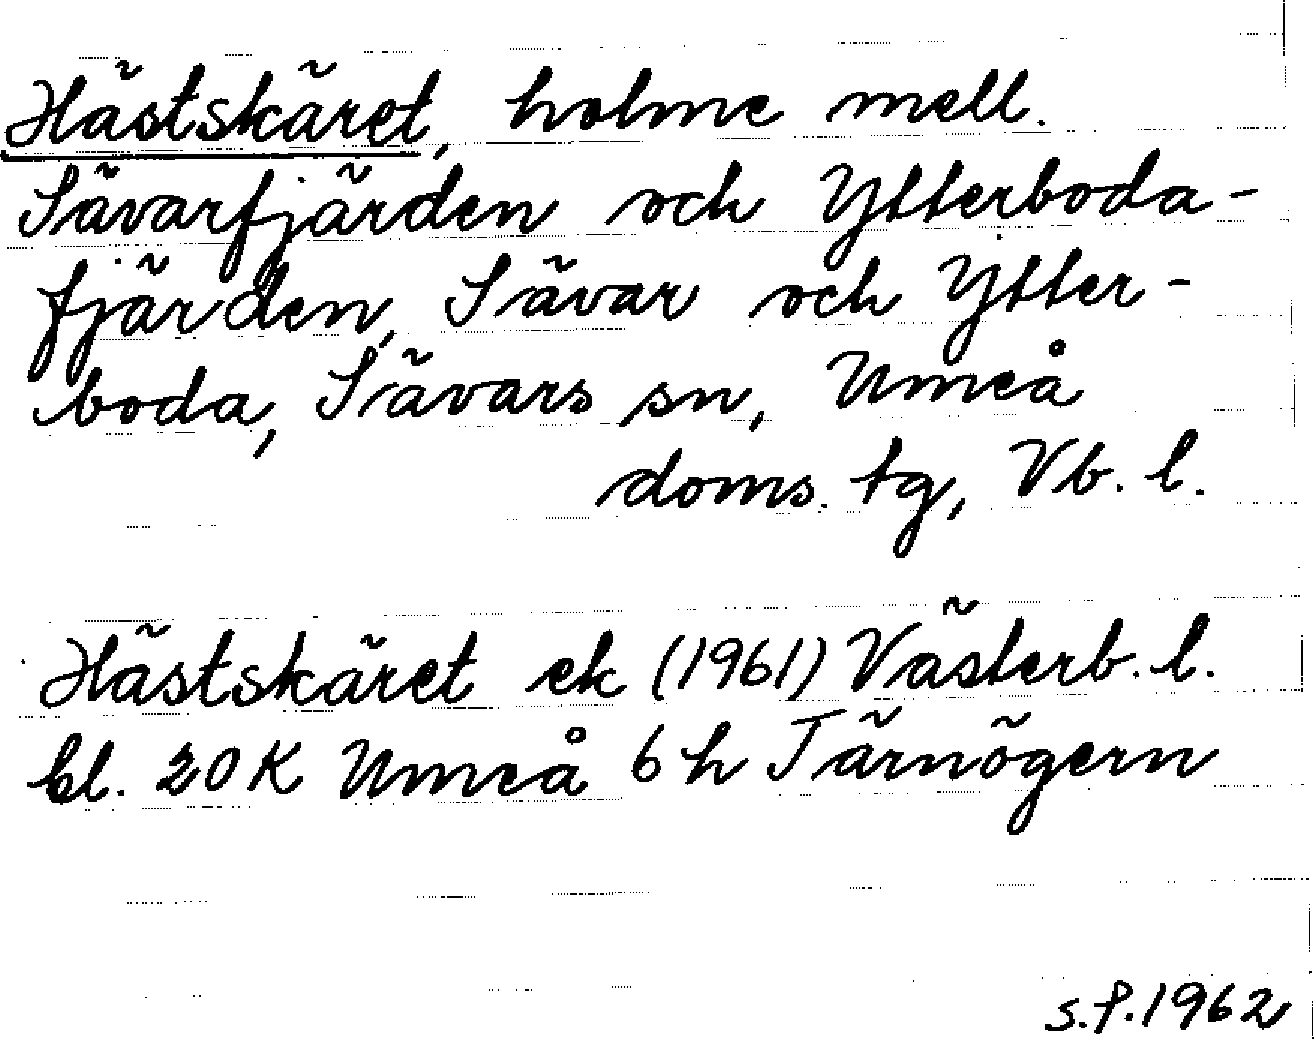 Hästskäret, holme mell.
Sävarfjärden och Ytterboda-
fjärden, Sävar och Ytter-
boda, Sävars sn, Umeå
doms. tg, Vb. l.
Hästskäret ek (1961) Västerb. l.
bl. 20K Umeå 6h Tärnögern
s.P.1962